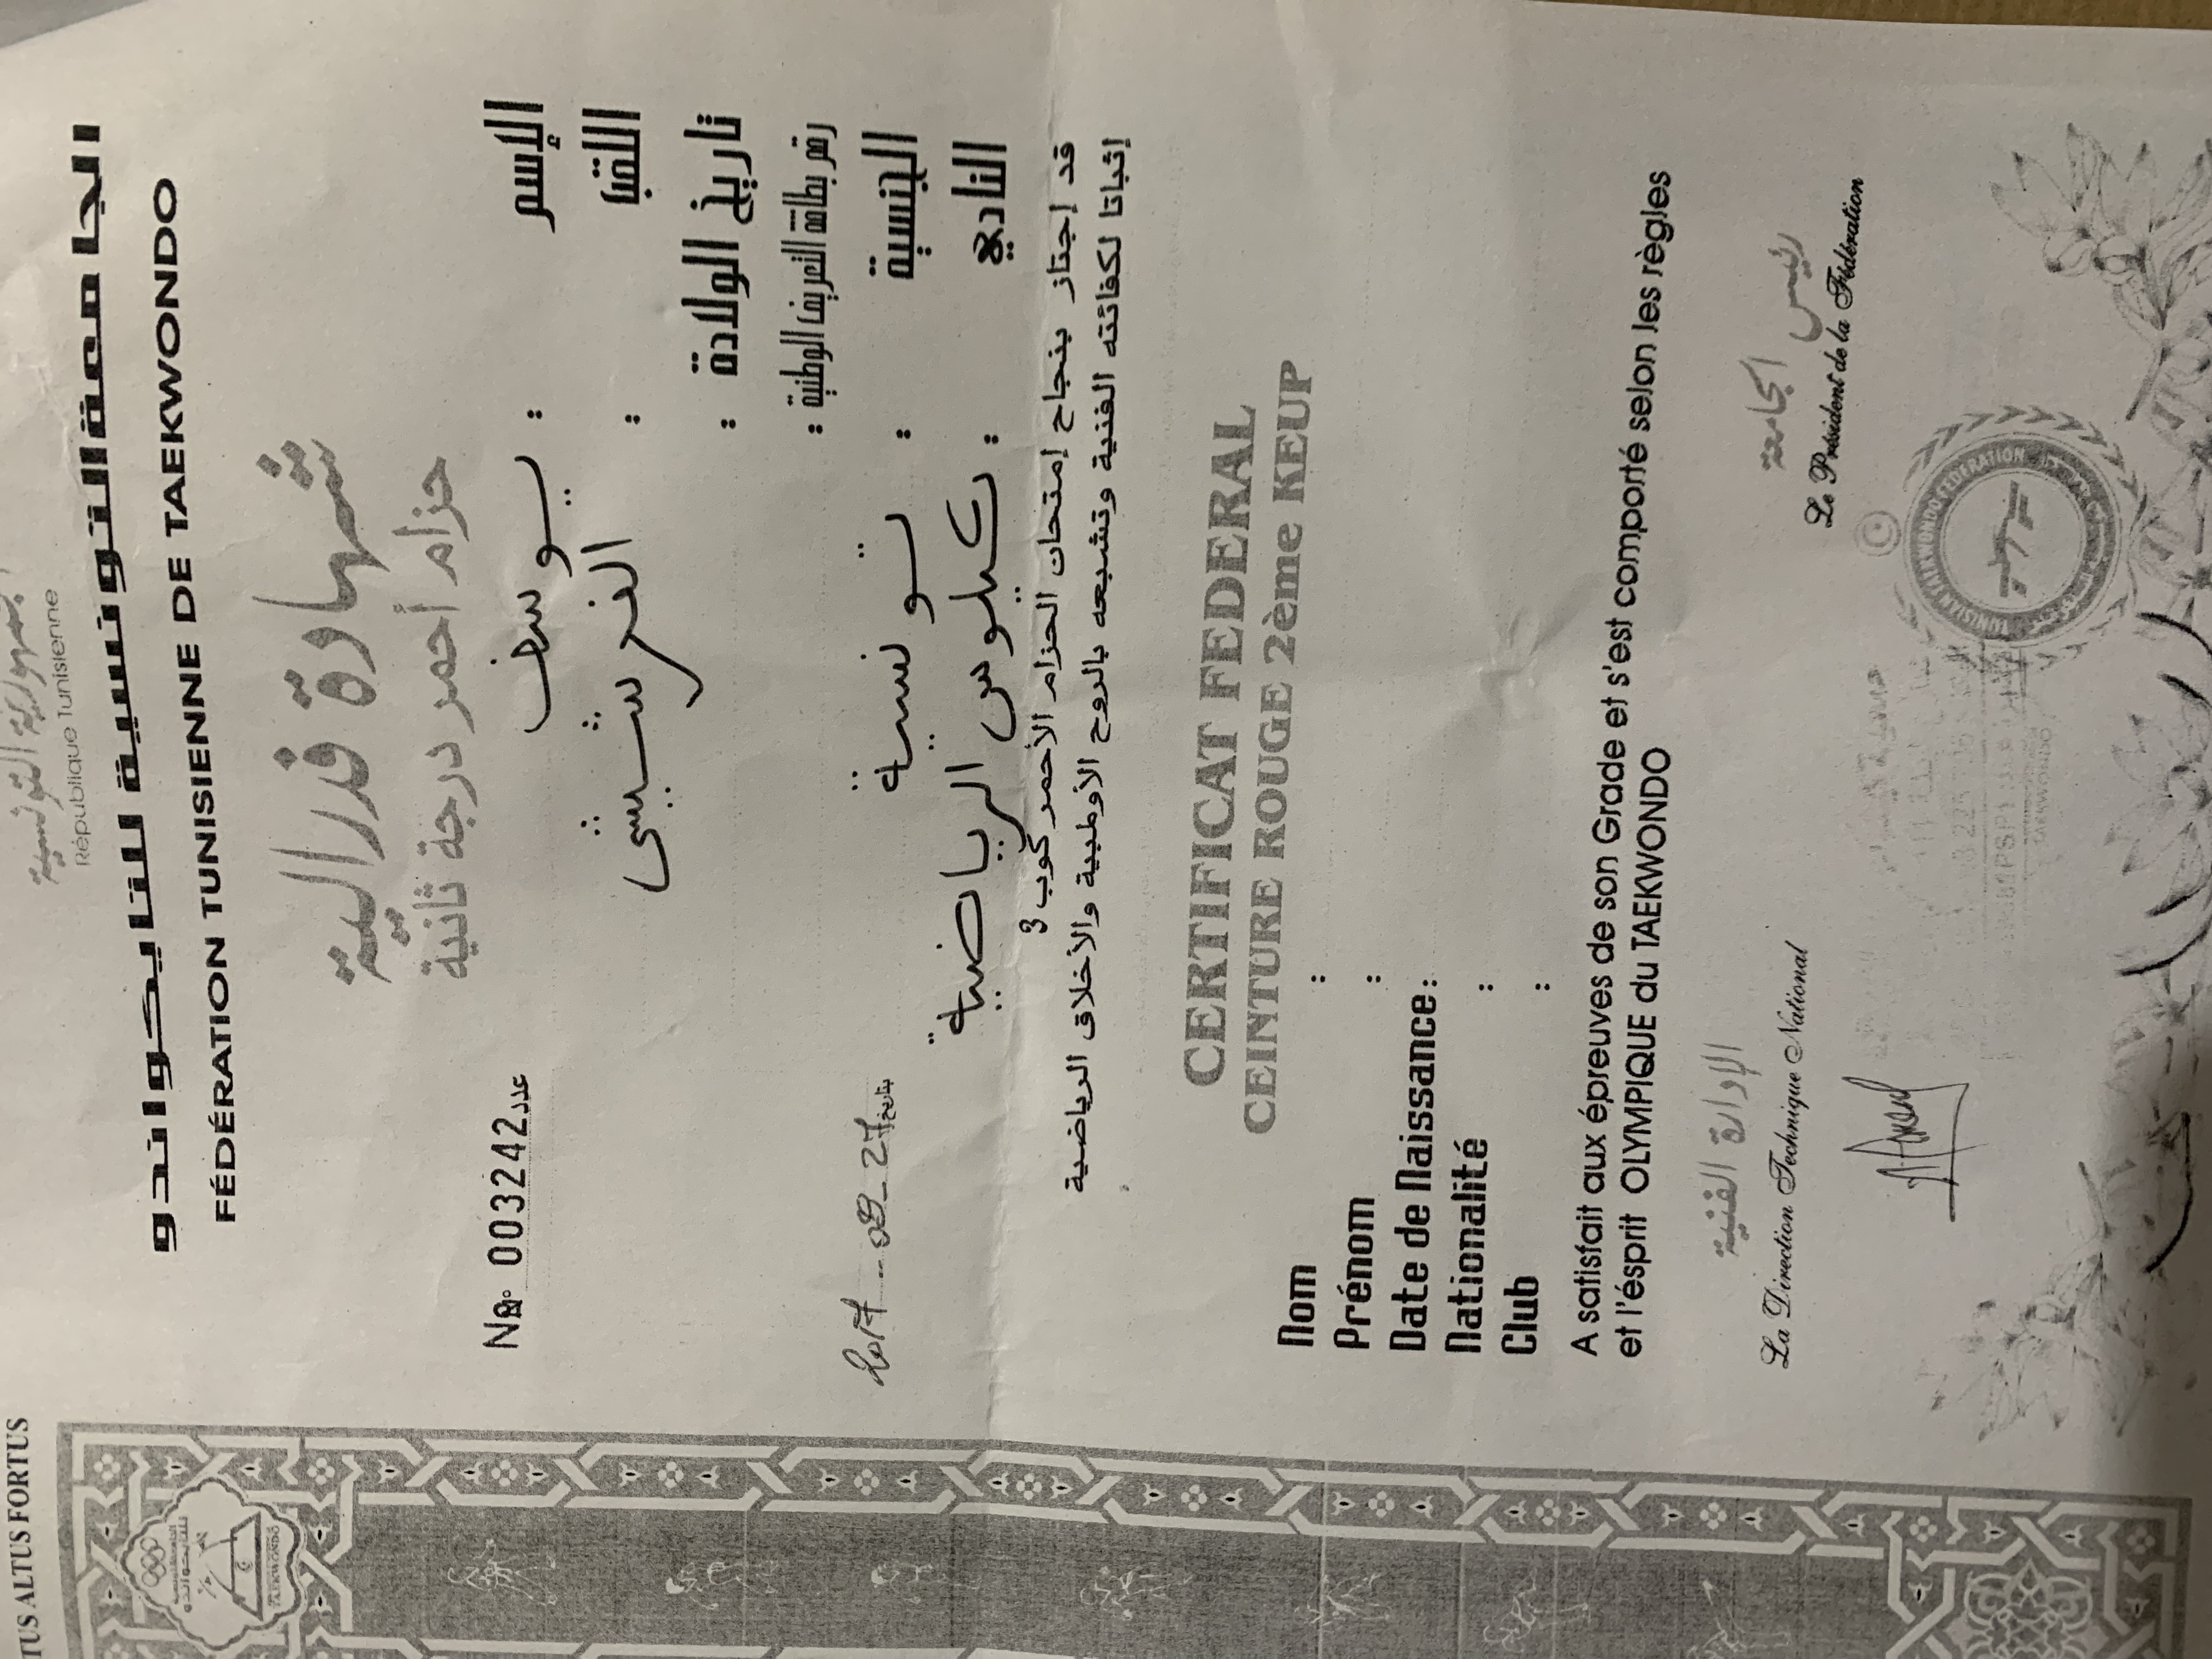 الجمهورية التونسية
République Tunisienne
TUS ALTUS FORTUS
الجامعة التونسية للتايكواندو
FÉDÉRATION TUNISIENNE DE TAEKWONDO
شهادة فدرالية
حزام أحمر درجة ثانية
الإسم : يوسف
№ 003242 عدد
اللقب :
تاريخ الولادة :
رقم بطاقة التعريف الوطنية :
الجنسية : تونسية
2017-09-27 بتاريخ
النادي : كيلوس الرياضية
قد إجتاز بنجاح إمتحان الحزام الأحمر كوب 3
إثباتا لكفائته الفنية وتشبعه بالروح الأولمبية والأخلاق الرياضية
CERTIFICAT FEDERAL
CEINTURE ROUGE 2ème KEUP
Nom :
Prénom :
Date de Naissance :
Nationalité :
Club :
A satisfait aux épreuves de son Grade et s'est comporté selon les règles
et l'ésprit OLYMPIQUE du TAEKWONDO
الإدارة الفنية
La Direction Technique National
رئيس الجامعة
Le Président de la Fédération
TUNISIAN TAEKWONDO FEDERATION
TAEKWONDO